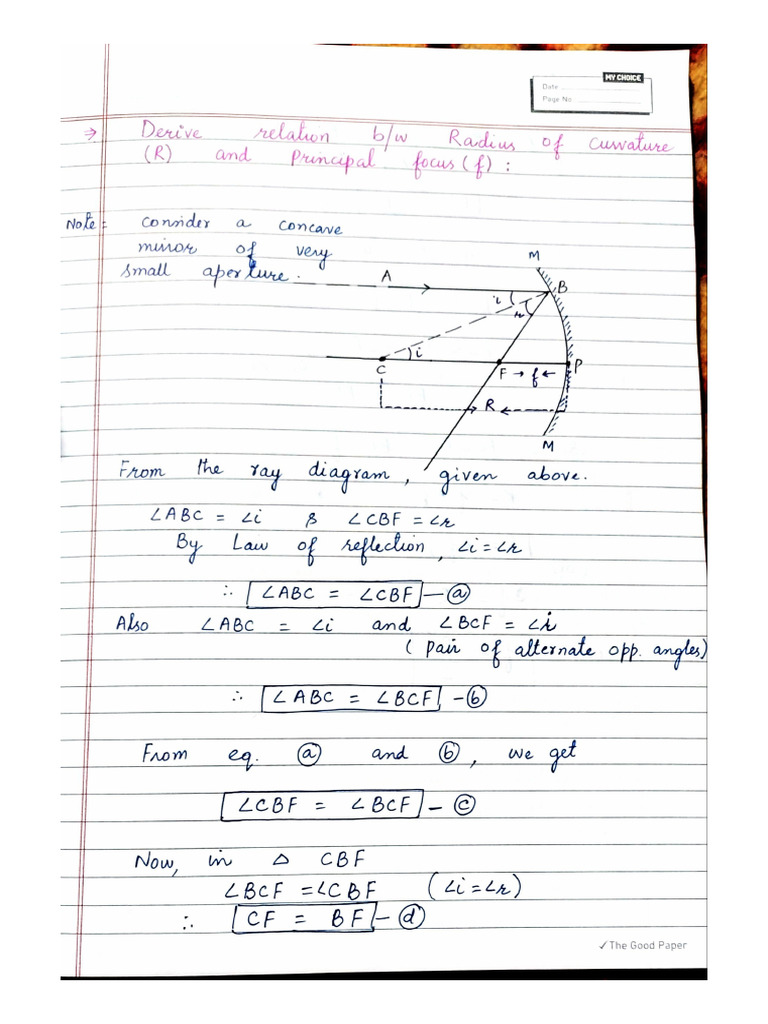 MY CHOICE
Date
Page No
⇒ Derive relation b/w Radius of Curvature
(R) and Principal focus (f) :
Note = consider a concave
mirror of very
small aperture.
M
A
B
i
r
i
C
F → f ←
P
R
M
From the ray diagram, given above.
∠ABC = ∠i & ∠CBF = ∠r
By Law of reflection, ∠i = ∠r
∴ ∠ABC = ∠CBF — ⓐ
Also ∠ABC = ∠i and ∠BCF = ∠i
( pair of alternate opp. angles)
∴ ∠ABC = ∠BCF - ⓑ
From eq. ⓐ and ⓑ, we get
∠CBF = ∠BCF - ⓒ
Now, in △ CBF
∠BCF = ∠CBF (∠i = ∠r)
∴ CF = BF - ⓓ
✓ The Good Paper